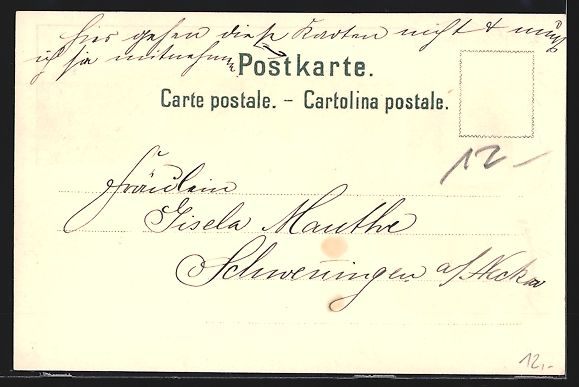 hier gehen diese Karten nicht & muß
ich sie mitnehmen
Postkarte.
Carte postale. – Cartolina postale.
12.-
Fräulein
Gisela Mauthe
Schwenningen a/Neckar
12,-